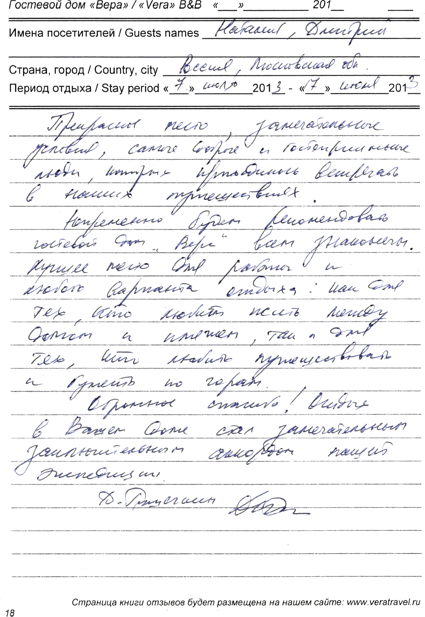 Гостевой дом «Вера» / «Vera» B&B «___»__________ 201__
Имена посетителей / Guests names Наталия, Дмитрий
Страна, город / Country, city Россия, Московская обл.
Период отдыха / Stay period «7» 2013 - «17» 2013
Прекрасное место, замечательные
условия, самые добрые и гостеприимные
люди, которых приходилось встречать
в наших путешествиях.
Непременно будем рекомендовать
гостевой дом „Вера" всем знакомым.
Лучшее место для работы и
любого варианта отдыха: как для
тех, кто любит жить между
и пляжем, так и для
тех, кто любит путешествовать
и гулять по горам.
Огромное спасибо! Отдых
в Вашем доме стал замечательным
заключительным аккордом нашей
экспедиции.
Д.
Страница книги отзывов будет размещена на нашем сайте: www.veratravel.ru
18